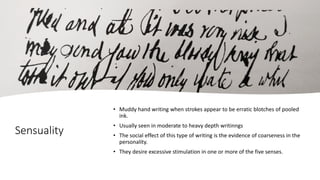 and ate it was very nice I
the bloody what
it out only a
Sensuality
• Muddy hand writing when strokes appear to be erratic blotches of pooled
ink.
• Usually seen in moderate to heavy depth writinngs
• The social effect of this type of writing is the evidence of coarseness in the
personality.
• They desire excessive stimulation in one or more of the five senses.